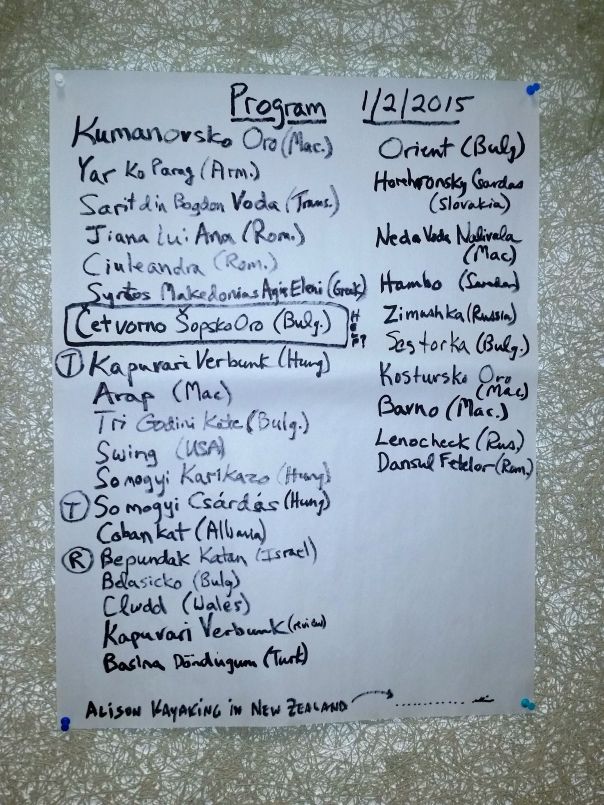 Program 1/2/2015
Kumanovsko Oro (Mac.)
Yar Ko Parag (Arm.)
Sarit din Bogdon Voda (Trans.)
Jiana Lui Ana (Rom.)
Ciuleandra (Rom.)
Syrtos Makedonias Agia Eleni (Greek)
Četvorno Šopsko Oro (Bulg.) HELP?
T Kapuvari Verbunk (Hung)
Arap (Mac)
Tri Godini Kate (Bulg.)
Swing (USA)
Somogyi Karikazo (Hung)
T Somogyi Csárdás (Hung)
Cobankat (Albania)
R Bepundak Katan (Israel)
Belasicko (Bulg)
Clwdd (Wales)
Kapuvari Verbunk (review)
Basina Döndügum (Turk)
Orient (Bulg)
Horehronsky Csardas
(Slovakia)
Neda Voda Nalivala
(Mac)
Hambo (Sweden)
Zimushka (Russia)
Sestorka (Bulg.)
Kostursko Oro
(Mac)
Bavno (Mac.)
Lenocheck (Rus.)
Dansul Fetelor (Rom.)
ALISON KAYAKING IN NEW ZEALAND